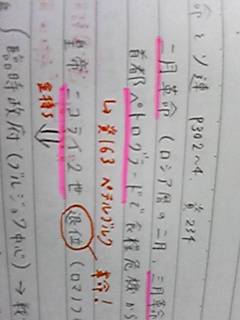 命とソ連 P392~4. 資234
二月革命 (ロシア暦の二月、三月革命
首都ペトログラードで食糧危機から
↳ 資163 ペテルブルク
皇帝ニコライ2世 退位 (ロマノフ
金持ち
臨時政府 (ブルジョワ中心) → 戦